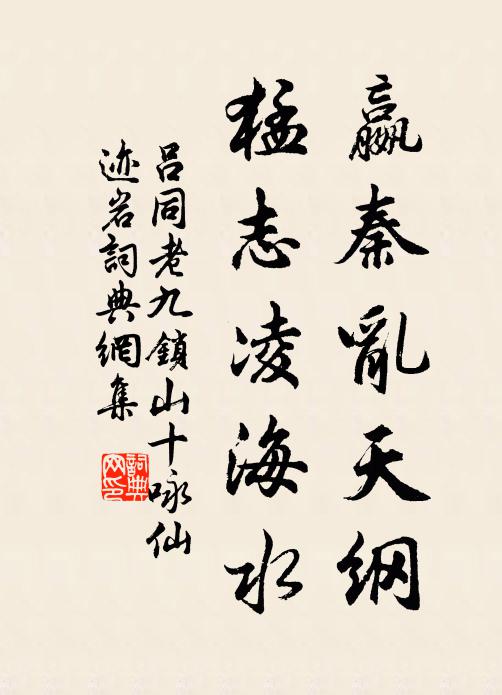 嬴秦亂天綱
猛志凌海水
呂同老九鎖山十咏仙
迹岩詞典網集
詞典
网印